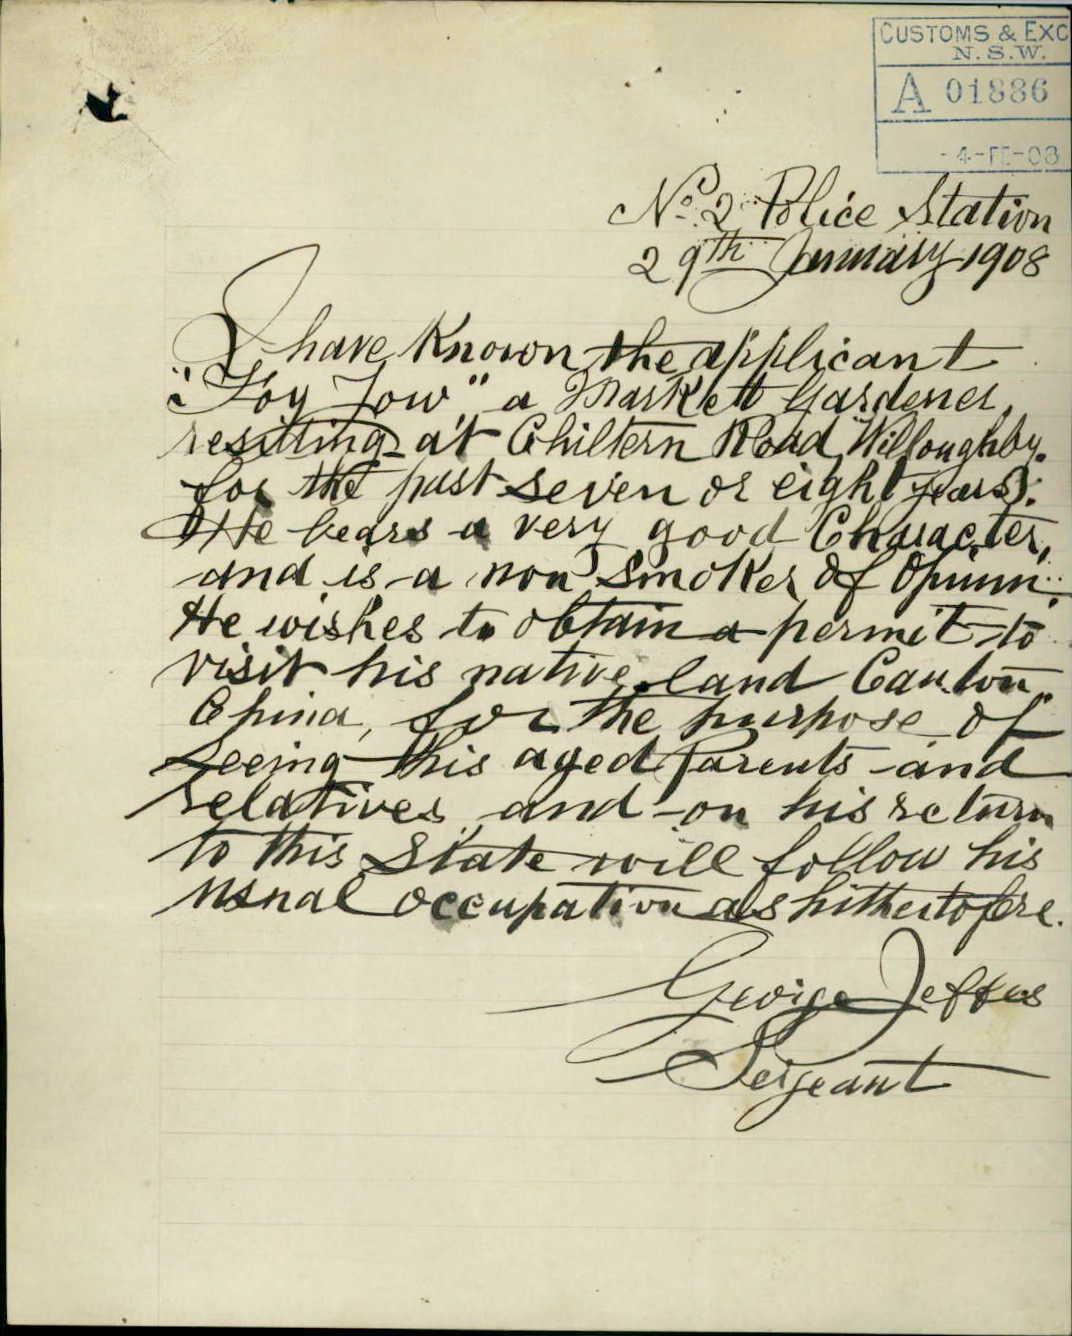 CUSTOMS & EXC
N.S.W.
A 01886
-4-FE-08
No. 2 Police Station
29th January 1908
I have known the applicant
"Foy Fow" a Markett Gardener,
resitting at Chiltern Road Willoughby.
for the past seven or eight years.
He bears a very good Character,
and is a non Smoker of Opium.
He wishes to obtain a permit to
visit his native land Canton
China, for the purpose of
seeing his aged Parents and
relatives and on his return
to this State will follow his
usual occupation as hithertofore.
George Jeffes
Sergeant